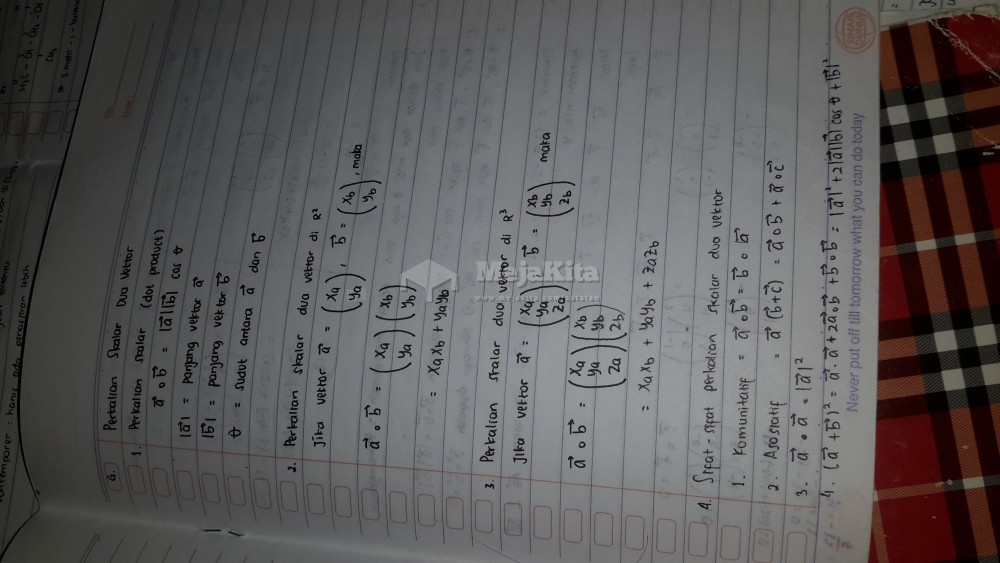 G. Perkalian Skalar Dua Vektor
1. Perkalian skalar (dot product)
a⃗ ∘ b⃗ = |a⃗||b⃗| cos θ
|a⃗| = panjang vektor a⃗
|b⃗| = panjang vektor b⃗
θ = sudut antara a⃗ dan b⃗
2. Perkalian skalar dua vektor di R²
Jika vektor a⃗ = (xa ya), b⃗ = (xb yb), maka
a⃗ ∘ b⃗ = (xa ya) (xb yb)
= xaxb + yayb
3. Perkalian skalar dua vektor di R³
Jika vektor a⃗ = (xa ya za) b⃗ = (xb yb zb) maka
a⃗ ∘ b⃗ = (xa ya za) (xb yb zb)
= xaxb + yayb + zazb
4. Sifat-sifat perkalian skalar dua vektor
1. Komunitatif = a⃗ ∘ b⃗ = b⃗ ∘ a⃗
2. Asosiatif = a⃗ (b⃗ + c⃗) = a⃗ ∘ b⃗ + a⃗ ∘ c⃗
3. a⃗ ∘ a⃗ = |a⃗|²
4. (a⃗ + b⃗)² = a⃗ . a⃗ + 2a⃗ ∘ b⃗ + b⃗ ∘ b⃗ = |a⃗|² + 2|a⃗||b⃗| cos θ + |b⃗|²
Never put off till tomorrow what you can do today
MejaKita